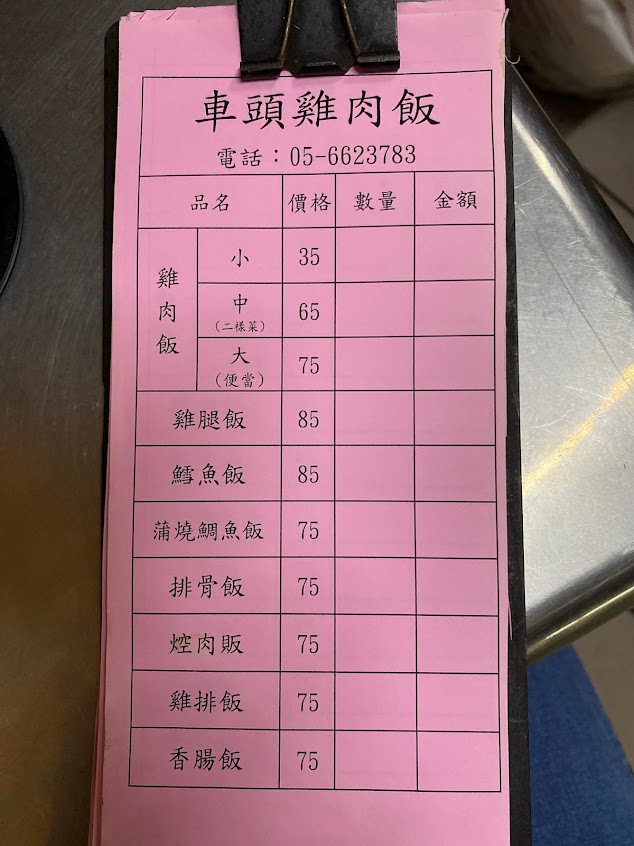 車頭雞肉飯
電話：05-6623783
品名 價格 數量 金額
雞肉飯
小 35
中 65
（二樣菜）
大 75
（便當）
雞腿飯 85
鱈魚飯 85
蒲燒鯛魚飯 75
排骨飯 75
焢肉販 75
雞排飯 75
香腸飯 75